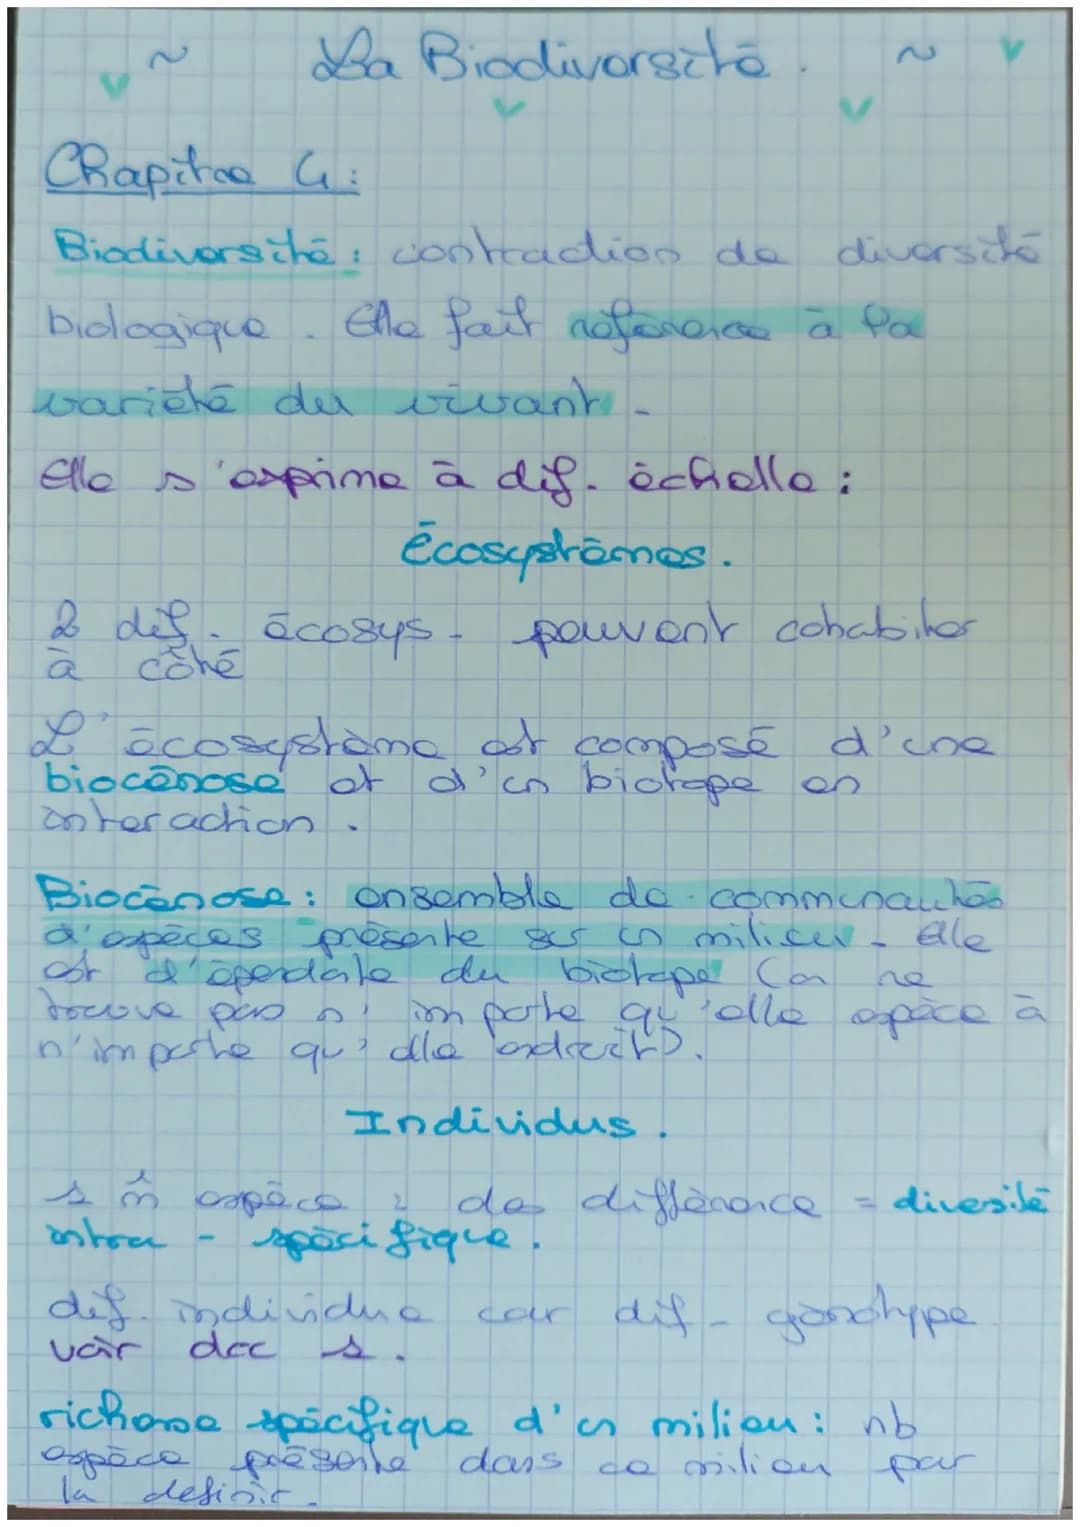 ~ La Biodiversité. ~
Chapitre 4:
Biodiversité : contraction de diversité
biologique. Elle fait référence à la
variété du vivant.
Elle s'exprime à dif. échelle :
Écosystèmes.
2 dif. écosys. peuvent cohabiter
à côté
L'écosystème est composé d'une
biocénose et d'un biotope en
interaction.
Biocénose : ensemble de communautés
d'espèces présente sur un milieu. Elle
est d'épendate du biotope (on ne
trouve pas n'importe qu'elle espèce à
n'importe qu'elle endroit).
Individus.
1 m̂ espèce : des différence = diversité
intra-spécifique.
dif. individue car dif. génotype
voir doc 1.
richesse spécifique d'un milieu : nb
espèce présente dans ce milieu par
la definir.